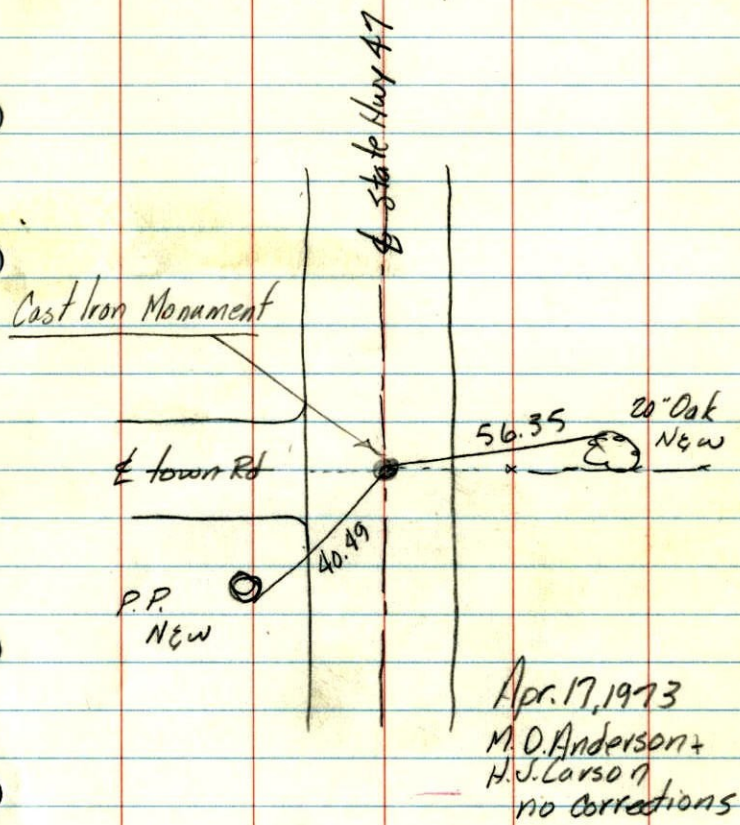 ℄ State Hwy 47
Cast Iron Monument
56.35
20" Oak
N&W
℄ town Rd
40.49
P.P.
N&W
Apr. 17, 1973
M.O. Anderson +
H.J. Carson
no corrections